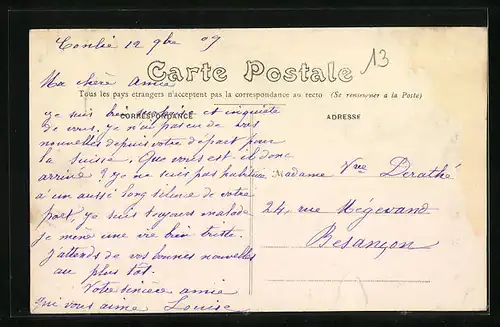 Conlie 12 9bre 09
13
Ma chère amie
Carte Postale
Tous les pays étrangers n'acceptent pas la correspondance au recto (Se renseigner à la Poste)
CORRESPONDANCE
ADRESSE
Je suis bien surprise et inquiète
de vous, je n'ai pas eu de vos
nouvelles depuis votre départ pour
la Suisse. Que vous est-il donc
arrivé? Je ne suis pas habituée
à un aussi long silence de votre
part, je suis toujours malade
je mène une vie bien triste.
J'attends de vos bonnes nouvelles
au plus tôt.
Votre sincère amie
qui vous aime Louise
Madame Vve Derathé
24, rue Mégevand
Besançon